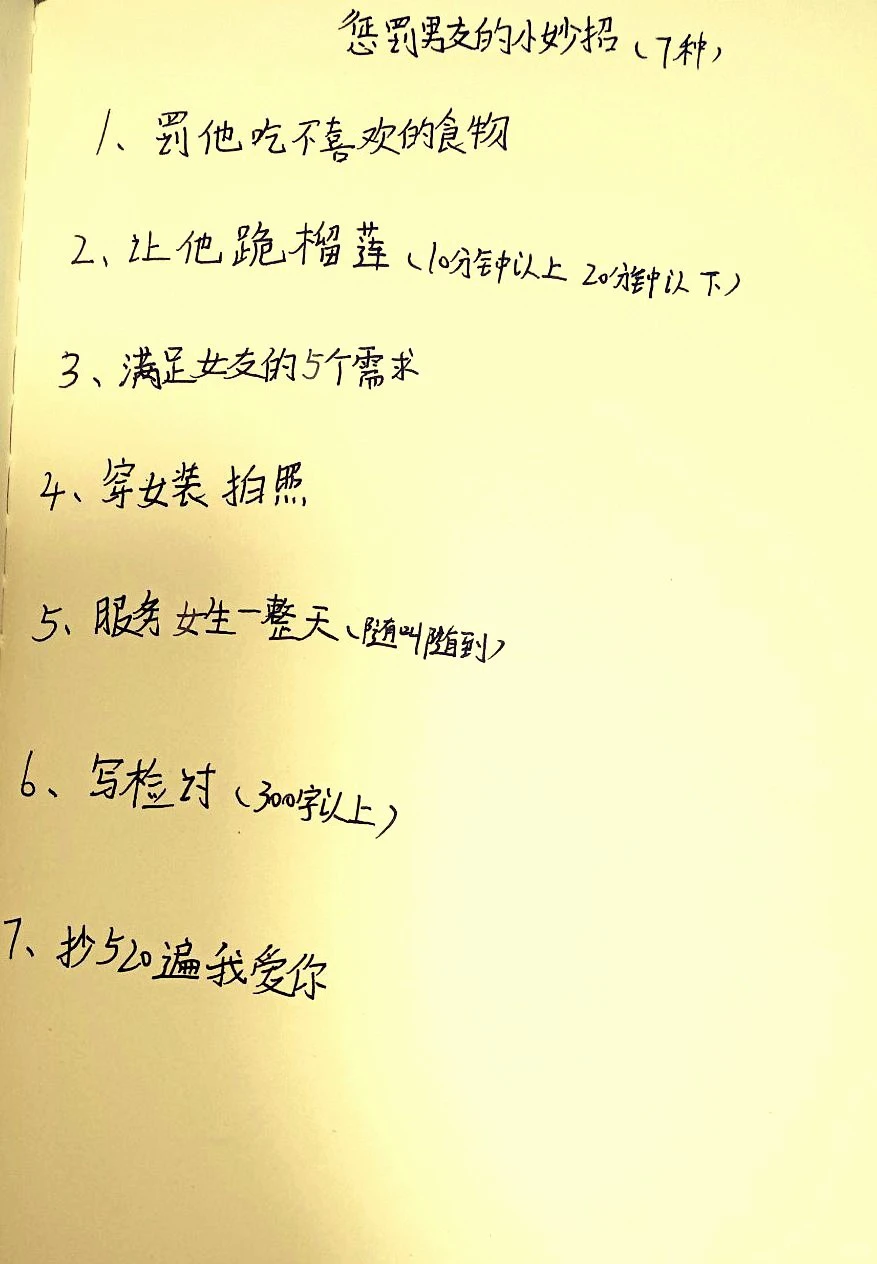 惩罚男友的小妙招(7种)
1、罚他吃不喜欢的食物
2、让他跪榴莲(10分钟以上 20分钟以下)
3、满足女友的5个需求
4、穿女装拍照
5、服务女生一整天(随叫随到)
6、写检讨(300字以上)
7、抄520遍我爱你